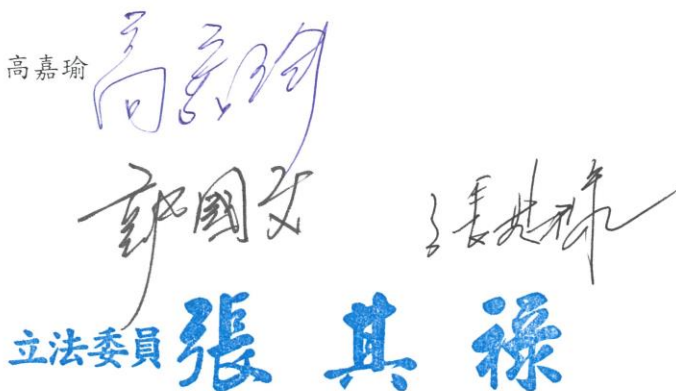 高嘉瑜 高嘉瑜
郭國文 張其祿
立法委員 張其祿